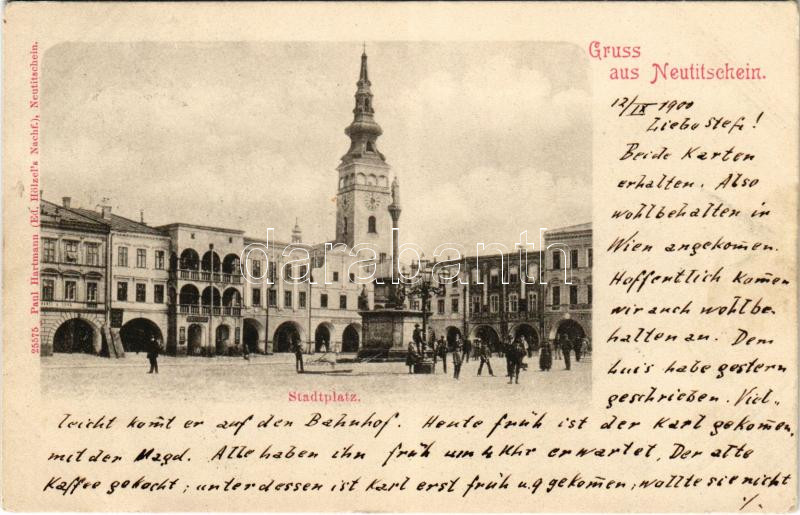 Gruss
aus Neutitschein.
12/IX 1900
Liebe Stefi!
Beide Karten
erhalten. Also
wohlbehalten in
Wien angekom̄en.
Hoffentlich kom̄en
wir auch wohlbe-
halten an. Dem
Luis habe gestern
geschrieben. Viel-
leicht kom̄t er auf den Bahnhof. Heute früh ist der Karl gekom̄en,
mit der Magd. Alle haben ihn früh um 4 Uhr erwartet, Der alte
Kaffee gekocht; unterdessen ist Karl erst früh u. 9 gekom̄en; wollte sie nicht
./.
Stadtplatz.
25575 Paul Hartmann (Ed. Hölzel's Nachf.), Neutitschein.
darabanth.com